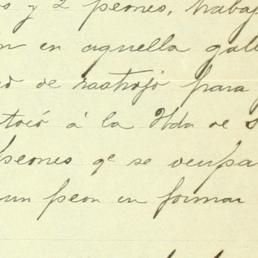 s y 2 peones, trabaj
n en aquella gall
o de rastrojo para
stoció á la Hda de S
peones qe se ocupa
un peon en formar